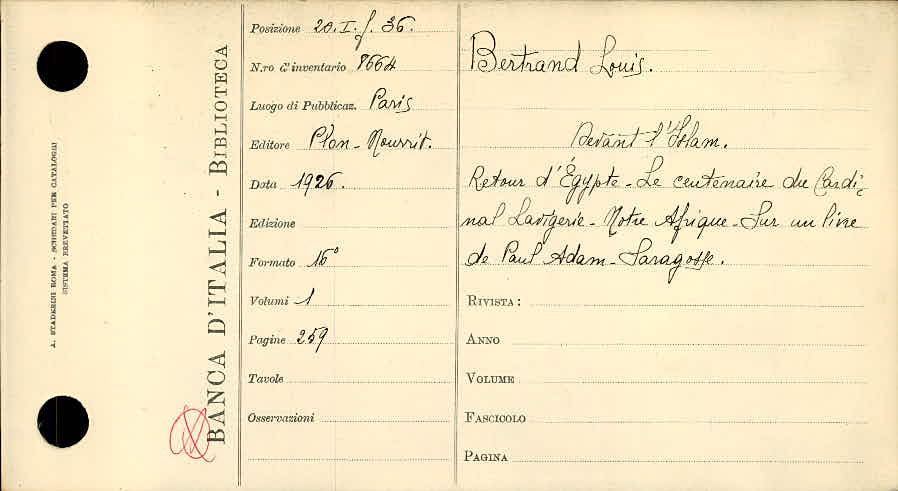 A. STADERINI ROMA - SCHEDARI PER CATALOGHI
SISTEMA BREVETTATO
BANCA D'ITALIA - BIBLIOTECA
Posizione 20. I. f. 36.
N.ro d'inventario 8664
Luogo di Pubblicaz. Paris
Editore Plon - Nourrit.
Data 1926.
Edizione
Formato 16°
Volumi 1
Pagine 259
Tavole
Osservazioni
Bertrand Louis.
Devant l'Islam.
Retour d'Égypte - Le centenaire du Cardi-
nal Lavigerie - Notre Afrique - Sur un livre
de Paul Adam - Saragosse.
RIVISTA:
ANNO
VOLUME
FASCICOLO
PAGINA